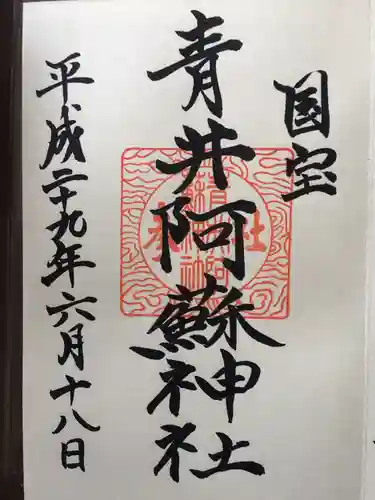 国宝
青井阿蘇神社
平成二十九年六月十八日